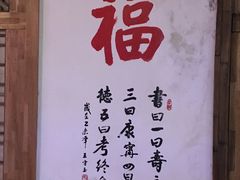 福
書曰一曰壽
三曰康寧四曰
徳五曰考終
歲在乙未年